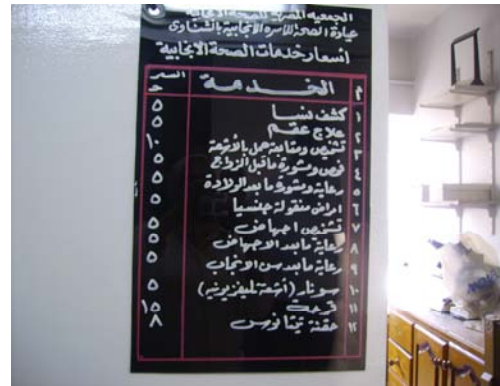 الجمعيه المصريه للصحة الانجابية
عيادة الصحة للأسره الإنجابية بالشناوى
أسعار خدمات الصحة الانجابية
م الخدمة السعر
١ كشف نسا ٥
٢ علاج عقم ٥
٣ تشخيص ومتابعة حمل بالأشعة ١٠
٤ فحص ومشورة ماقبل الزواج ٥
٥ رعاية ومشورة ما بعد الولادة ٥
٦ امراض منقولة جنسيا ٥
٧ تشخيص اجهاض ٥
٨ رعاية ما بعد الاجهاض ٥
٩ رعاية ما بعد سن الانجاب ٥
١٠ سونار (أشعة تليفزيونيه) ٥
١١ قرحة ١٥
١٢ حقنة تيتانوس ٨